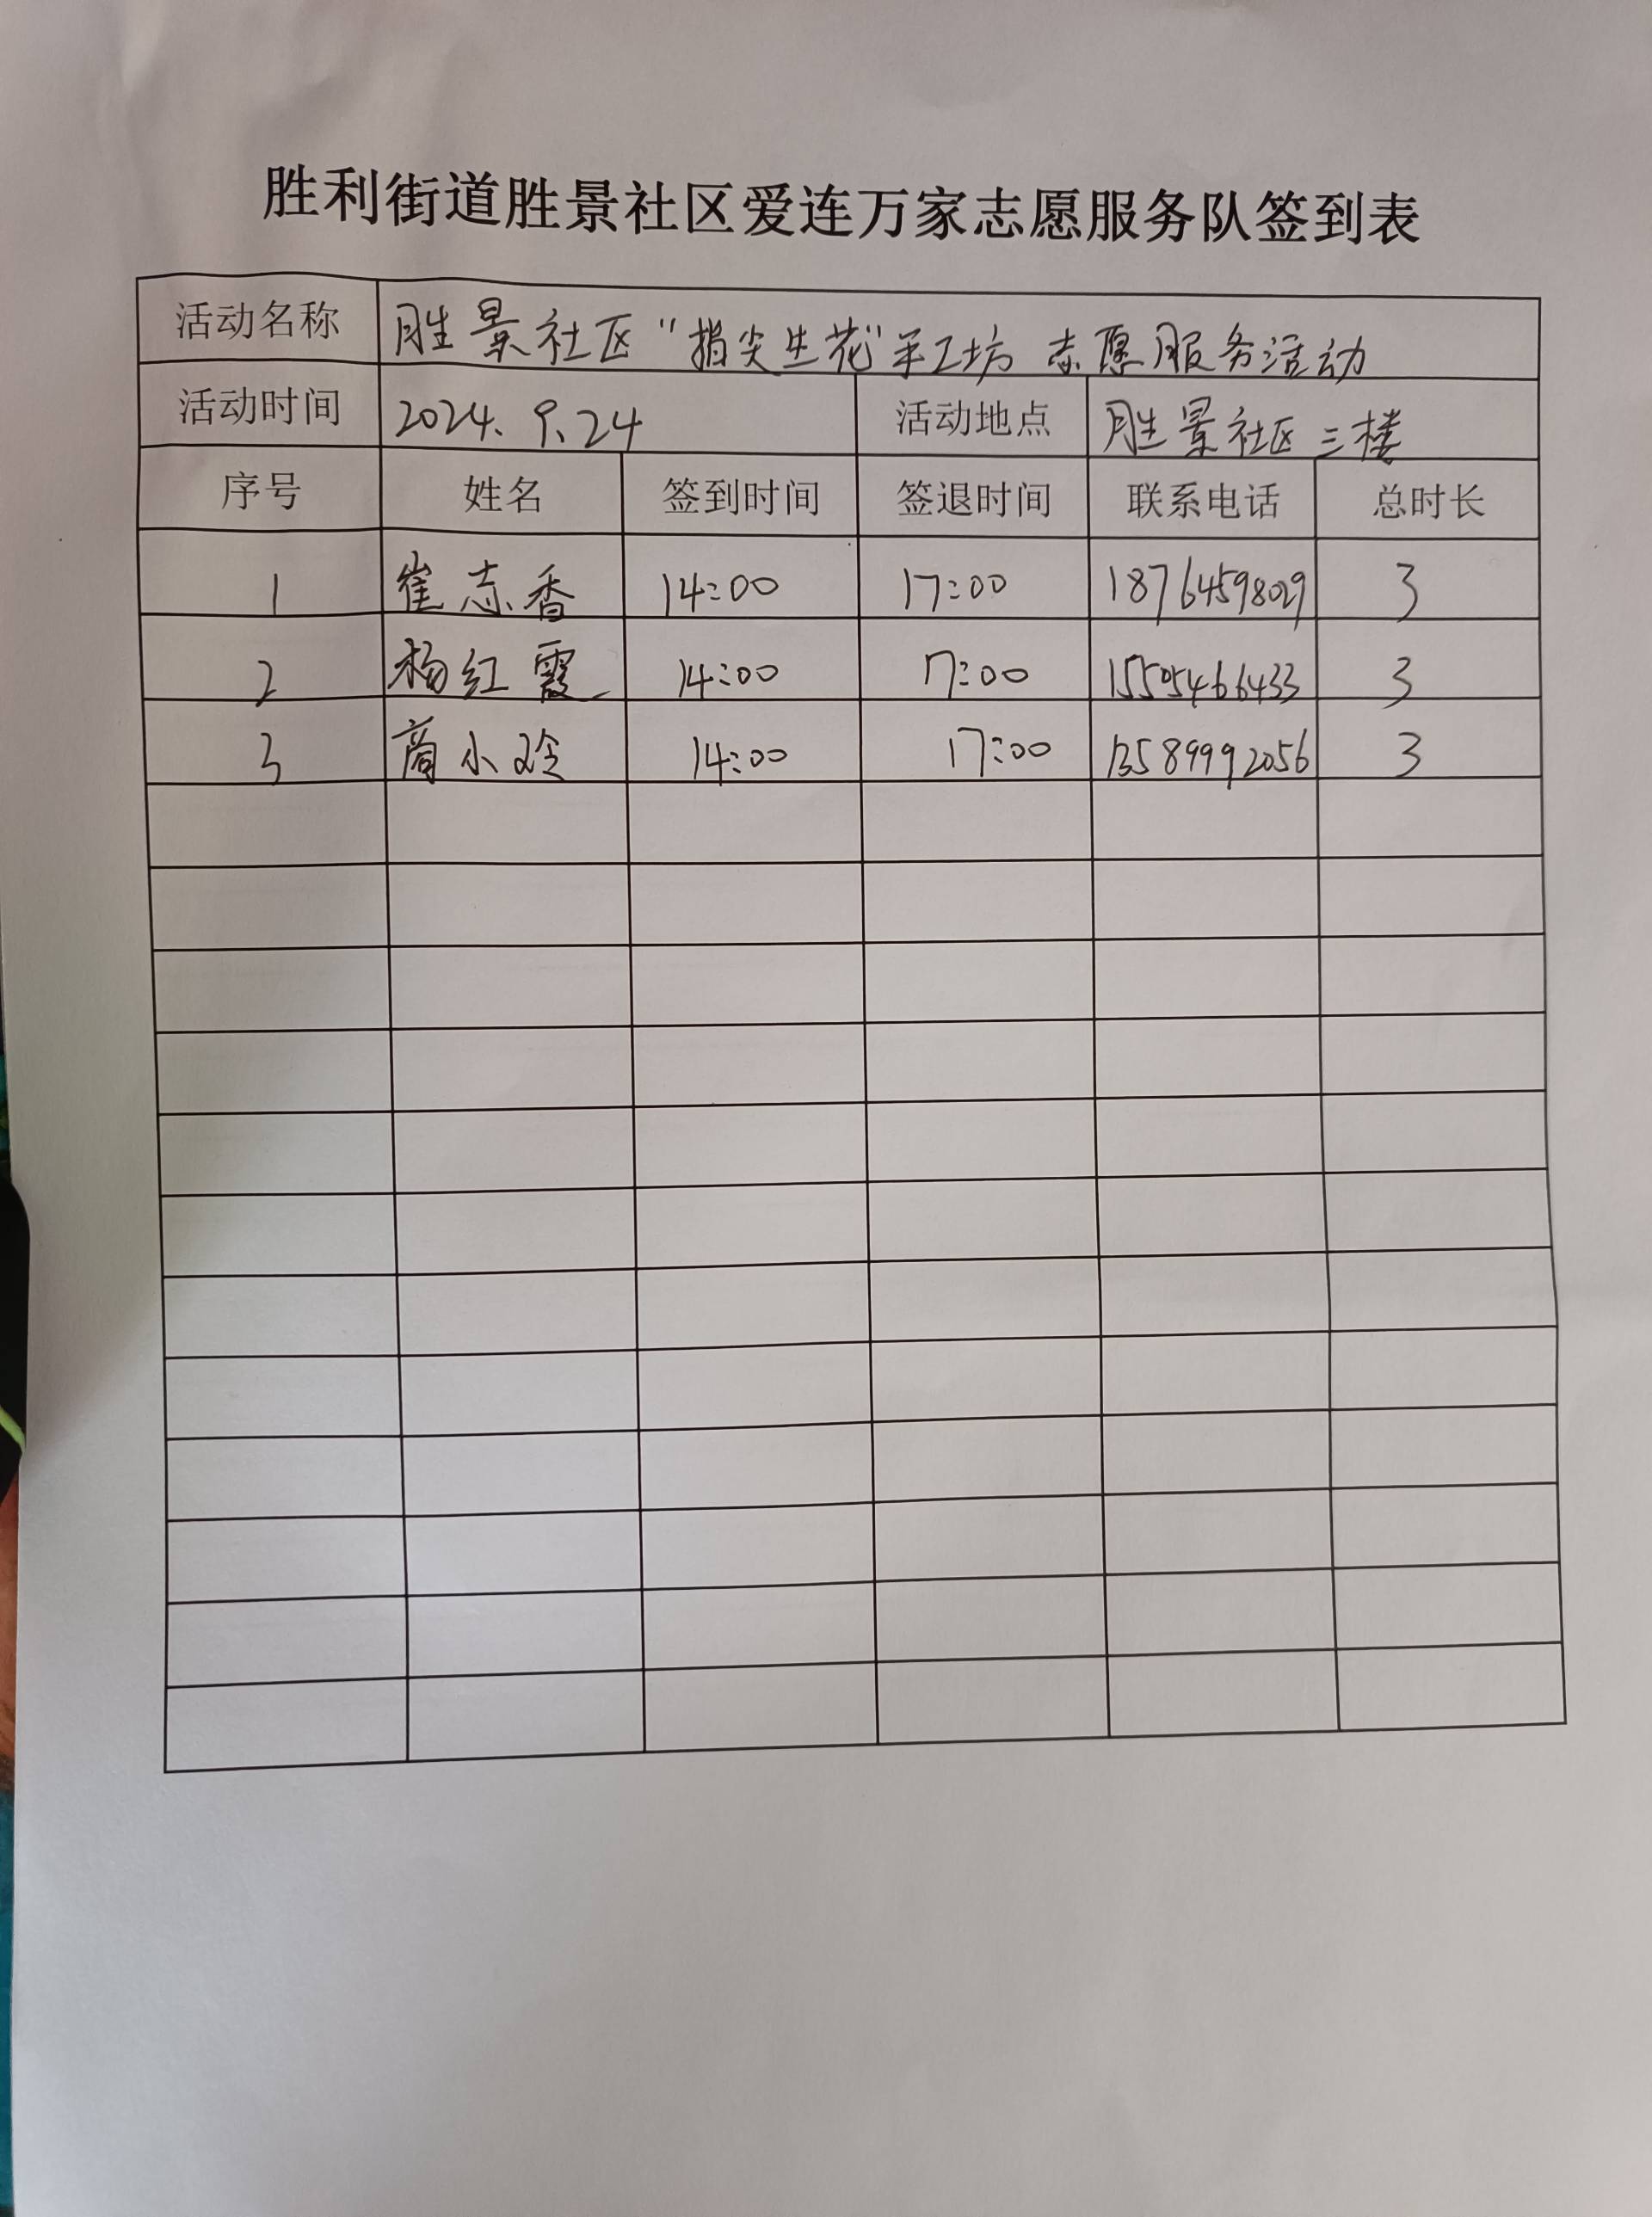 胜利街道胜景社区爱连万家志愿服务队签到表
活动名称 胜景社区“指尖生花”手工坊 志愿服务活动
活动时间 2024.9.24 活动地点 胜景社区三楼
序号 姓名 签到时间 签退时间 联系电话 总时长
1 崔志香 14:00 17:00 18764598029 3
2 杨红霞 14:00 17:00 15505466433 3
3 商小玲 14:00 17:00 13589992056 3